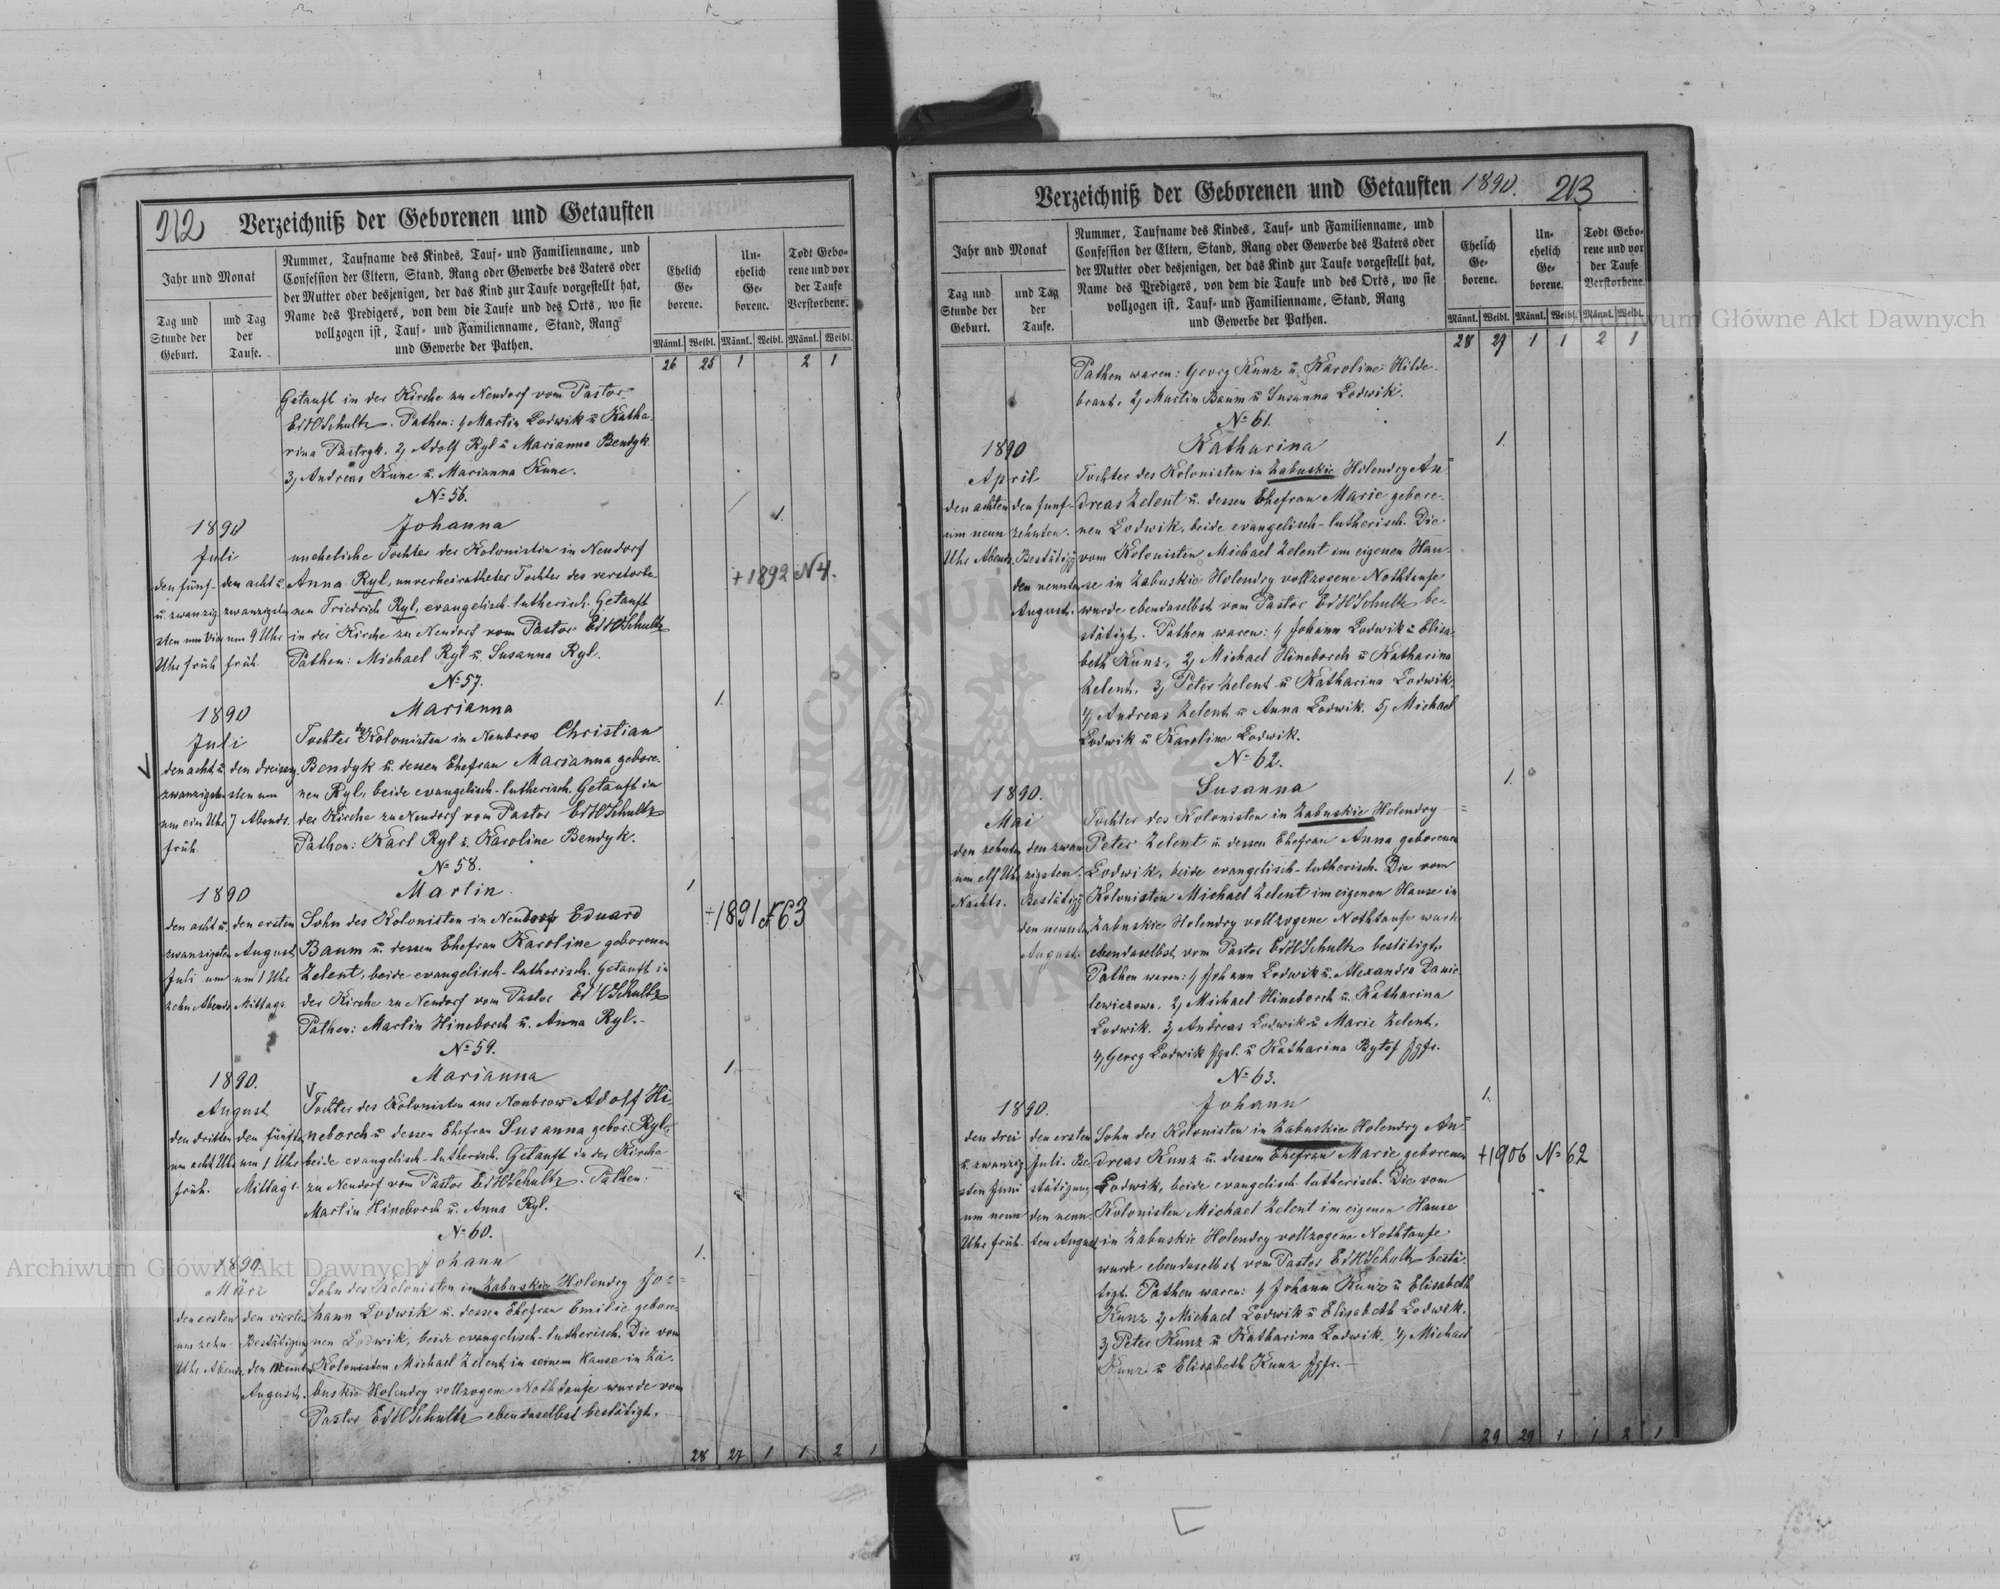 212 Verzeichniß der Geborenen und Getauften
Jahr und Monat
Tag und Stunde der Geburt.
und Tag der Taufe.
Nummer, Taufname des Kindes, Tauf- und Familienname, und
Confession der Eltern, Stand, Rang oder Gewerbe des Vaters oder
der Mutter oder desjenigen, der das Kind zur Taufe vorgestellt hat,
Name des Predigers, von dem die Taufe und des Orts, wo sie
vollzogen ist, Tauf- und Familienname, Stand, Rang
und Gewerbe der Pathen.
Ehelich Ge- borene.
Un- ehelich Ge- borene.
Todt Gebo- rene und vor der Taufe Verstorbene.
Männl. Weibl. Männl. Weibl. Männl. Weibl.
26 25 1 2 1
Getauft in der Kirche zu Neudorf vom Pastor
EdHSchultz. Pathen: 1, Martin Lodwik u Katha-
rina Pastryk. 2, Adolf Ryl u Marianna Bendyk.
3, Andreas Kunc u. Marianna Kunc.
No 56.
1890
Juli
den fünf-
u. zwanzig-
sten um vier
Uhr früh
den acht u.
zwanzigsten
um 9 Uhr
früh.
Johanna
1.
uneheliche Tochter der Kolonistin in Neudorf
Anna Ryl, unverheiratheter Tochter des verstorbe-
nen Friedrich Ryl, evangelisch-lutherisch. Getauft
in der Kirche zu Neudorf vom Pastor EdHSchultz
Pathen: Michael Ryl u. Susanna Ryl.
+1892 N 4.
No 57.
1890
Juli
den acht u.
zwanzigsten
um ein Uhr
früh
den dreissig-
sten um
7 Abends.
Marianna
1.
Tochter des Kolonisten in Neubrow Christian
Bendyk u. dessen Ehefrau Marianna gebore-
nen Ryl, beide evangelisch-lutherisch. Getauft in
der Kirche zu Neudorf vom Pastor EdHSchultz
Pathen: Karl Ryl u. Karoline Bendyk.
No 58.
1890
den acht u.
zwanzigsten
Juli um
zehn Abends
den ersten
August
um 1 Uhr
Mittags
Martin.
1
Sohn des Kolonisten in Neudorf Eduard
Baum u. dessen Ehefrau Karoline geborenen
Zelent, beide evangelisch-lutherisch. Getauft in
der Kirche zu Neudorf vom Pastor EdHSchultz
Pathen: Martin Hineborch u. Anna Ryl.-
1891 № 63
No 59.
1890.
August
den dritten
um acht Uhr
früh.
den fünften
um 1 Uhr
Mittags.
Marianna
1
Tochter des Kolonisten aus Neubrow Adolf Hi-
neborch u dessen Ehefrau Susanna gebor. Ryl,
beide evangelisch-lutherisch. Getauft in der Kirche
zu Neudorf vom Pastor EdHSchultz. Pathen:
Martin Hineborch u. Anna Ryl.
No 60.
1890
März
den ersten
um zehn
Uhr Abends.
den vierten
Bestätigung
den neunten
August.
Johann
1.
Sohn des Kolonisten in Zabuskie Holendry Jo-
hann Lodwik u. dessen Ehefrau Emilie gebore-
nen Lodwik, beide evangelisch-lutherisch. Die vom
Kolonisten Michael Zelent in seinem Hause in Za-
buskie Holendry vollzogene Nothtaufe wurde vom
Pastor EdHSchultz ebendaselbst bestätigt.
28 27 1 1 2 1
Verzeichniß der Geborenen und Getauften 1890. 213
Jahr und Monat
Tag und Stunde der Geburt.
und Tag der Taufe.
Nummer, Taufname des Kindes, Tauf- und Familienname, und
Confession der Eltern, Stand, Rang oder Gewerbe des Vaters oder
der Mutter oder desjenigen, der das Kind zur Taufe vorgestellt hat,
Name des Predigers, von dem die Taufe und des Orts, wo sie
vollzogen ist, Tauf- und Familienname, Stand, Rang
und Gewerbe der Pathen.
Ehelich Ge- borene.
Un- ehelich Ge- borene.
Todt Gebo- rene und vor der Taufe Verstorbene.
Männl. Weibl. Männl. Weibl. Männl. Weibl.
28 27 1 1 2 1
Pathen waren: Georg Kunz u. Karoline Hilde-
brant. 2, Martin Baum u Susanna Lodwik.
No 61.
1890
April
den achten
um neun
Uhr Abends.
den funf-
zehnten.
Bestätigg
den neunten
August.
Katharina
1.
Tochter des Kolonisten in Zabuskie Holendry An-
dreas Zelent u. dessen Ehefrau Marie gebore-
nen Lodwik, beide evangelisch-lutherisch. Die
vom Kolonisten Michael Zelent im eigenen Hau-
se in Zabuskie Holendry vollzogene Nothtaufe
wurde ebendaselbst vom Pastor EdHSchultz be-
stätigt. Pathen waren: 1, Johann Lodwik u Elisa-
beth Kunz, 2, Michael Hineborch u Katharina
Zelent, 3, Peter Zelent u Katharina Lodwik,
4, Andreas Zelent u Anna Lodwik. 5, Michael
Lodwik u Karoline Lodwik.
No 62.
1890.
Mai
den zehnten
um elf Uhr
Nachts.
den zwan-
zigsten.
Bestätigg
den neunten
August.
Susanna
1.
Tochter des Kolonisten in Zabuskie Holendry
Peter Zelent u dessen Ehefrau Anna geborenen
Lodwik, beide evangelisch-lutherisch. Die vom
Kolonisten Michael Zelent im eigenen Hause in
Zabuskie Holendry vollzogene Nothtaufe wurde
ebendaselbst vom Pastor EdHSchultz bestätigt.
Pathen waren: 1, Johann Lodwik u. Alexandra Danie-
lewiczowa. 2, Michael Hineborch u. Katharina
Lodwik. 3, Andreas Lodwik u Marie Zelent.
4, Georg Lodwik Jggsl. u Katharina Bytof Jgfr.
No 63.
1890.
den drei
u. zwanzig-
sten Juni
um neun
Uhr früh.
den ersten
Juli. Be-
stätigung
den neun-
ten August
Johann
1.
Sohn des Kolonisten in Zabuskie Holendry An-
dreas Kunz u. dessen Ehefrau Marie geborenen
Lodwik, beide evangelisch lutherisch. Die vom
Kolonisten Michael Zelent im eigenen Hause
in Zabuskie Holendry vollzogene Nothtaufe
wurde ebendaselbst vom Pastor EdHSchultz bestä-
tigt. Pathen waren: 1, Johann Kunz u Elisabeth
Kunz 2, Michael Lodwik u Elisabeth Lodwik.
3, Peter Kunz u Katharina Lodwik. 4, Michael
Kunz u Elisabeth Kunz Jgfr.-
+1906 No 62
29 29 1 1 2 1
Archiwum Główne Akt Dawnych
Archiwum Główne Akt Dawnych